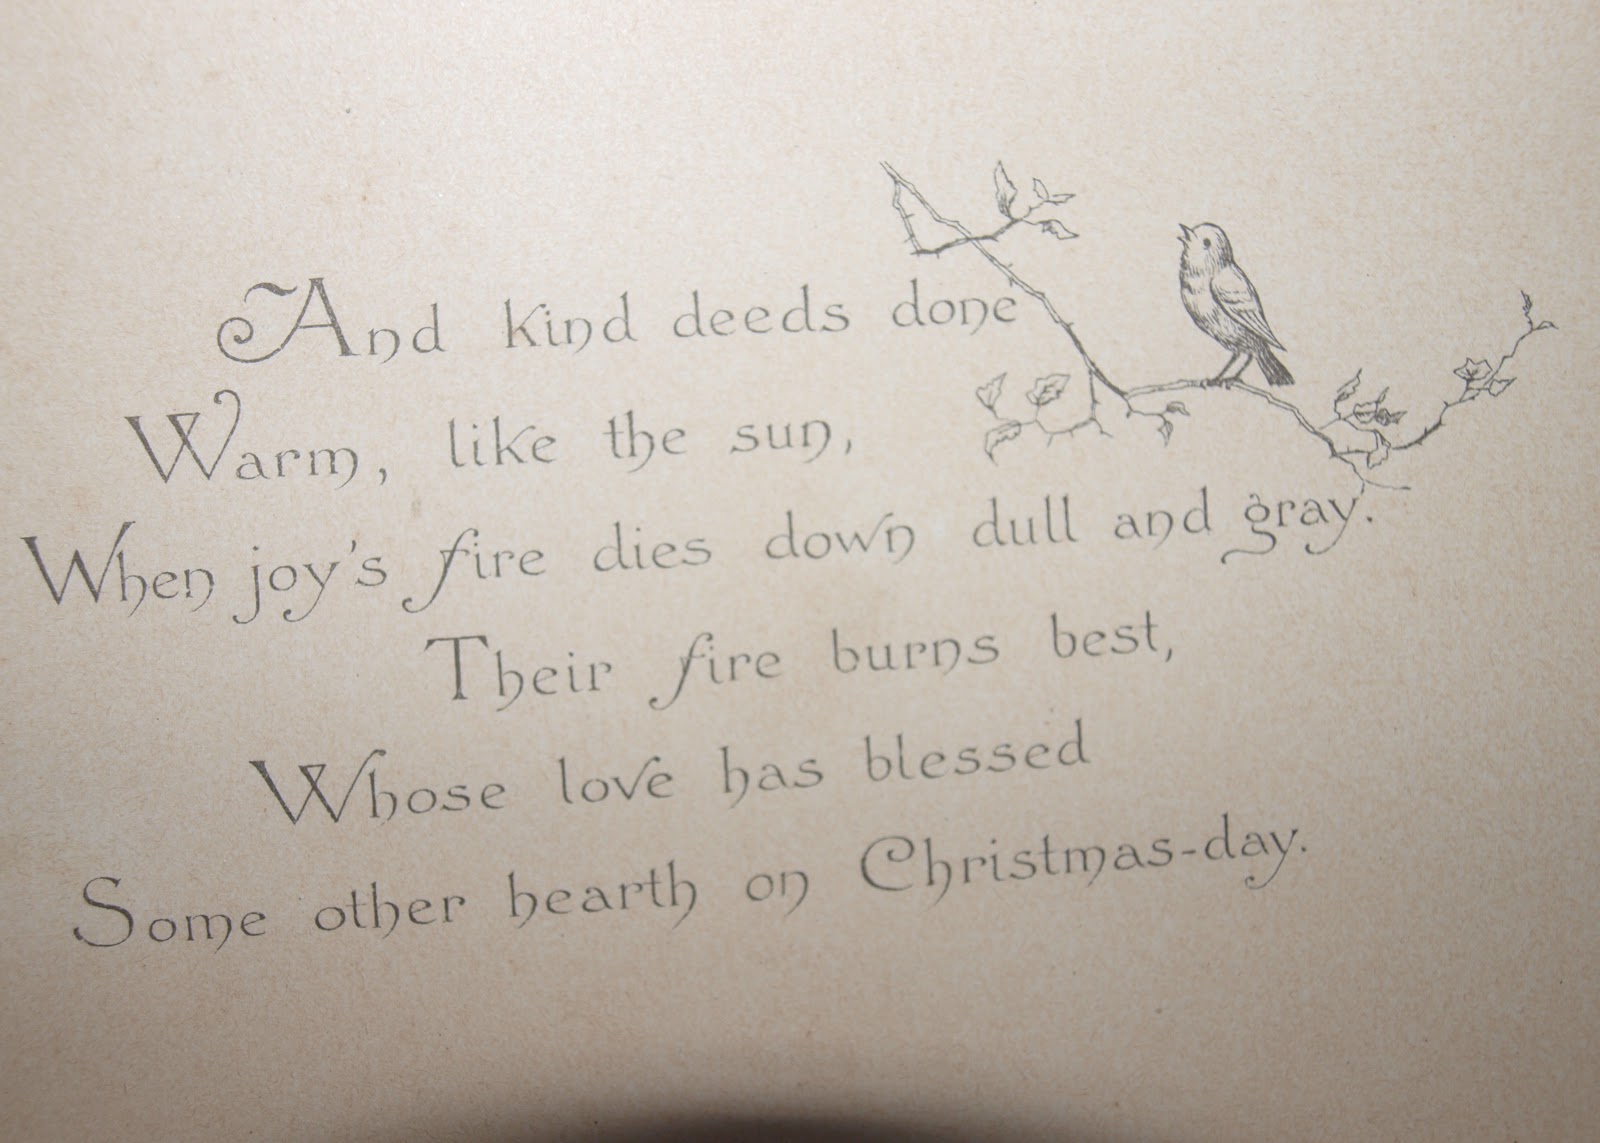 And kind deeds done
Warm, like the sun,
When joy's fire dies down dull and gray.
Their fire burns best,
Whose love has blessed
Some other hearth on Christmas-day.